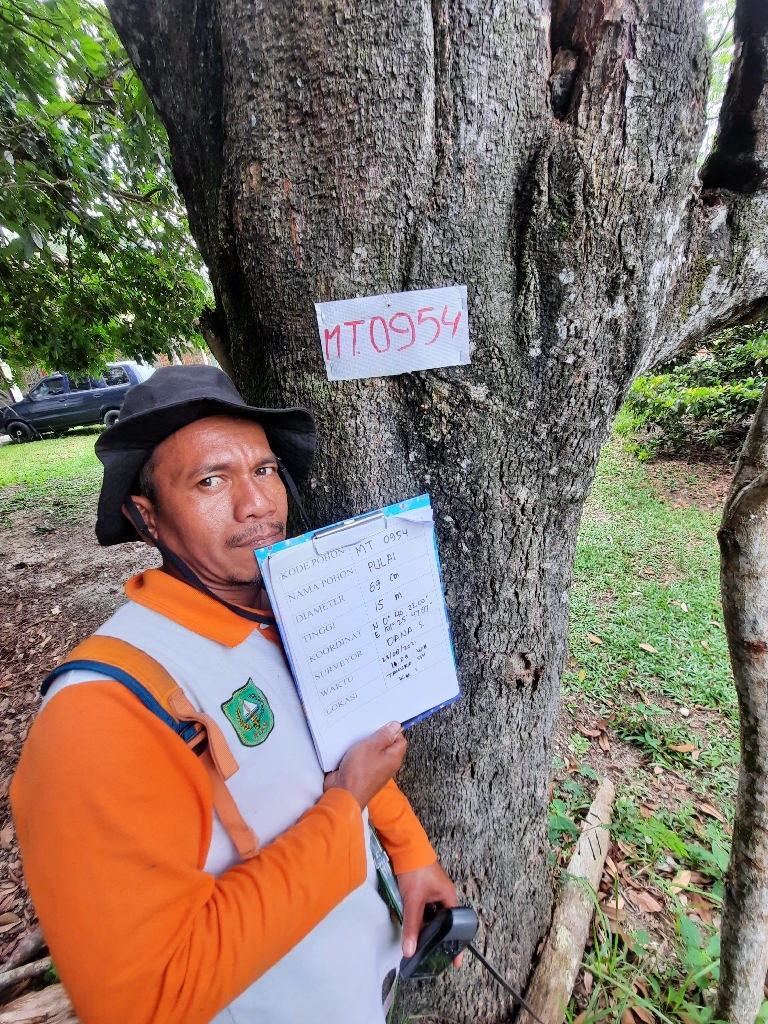 MT.0954
KODE POHON MT 0954
NAMA POHON PULAI
DIAMETER 69 cm
TINGGI 15 m
KOORDINAT N 0° 40' 22.00"
SURVEYOR DANA S.
WAKTU
LOKASI